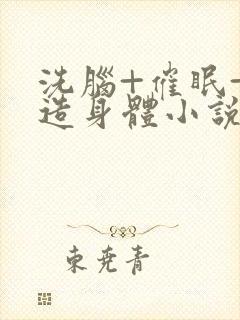 洗腦+催眠+
造身體小說
東堯青